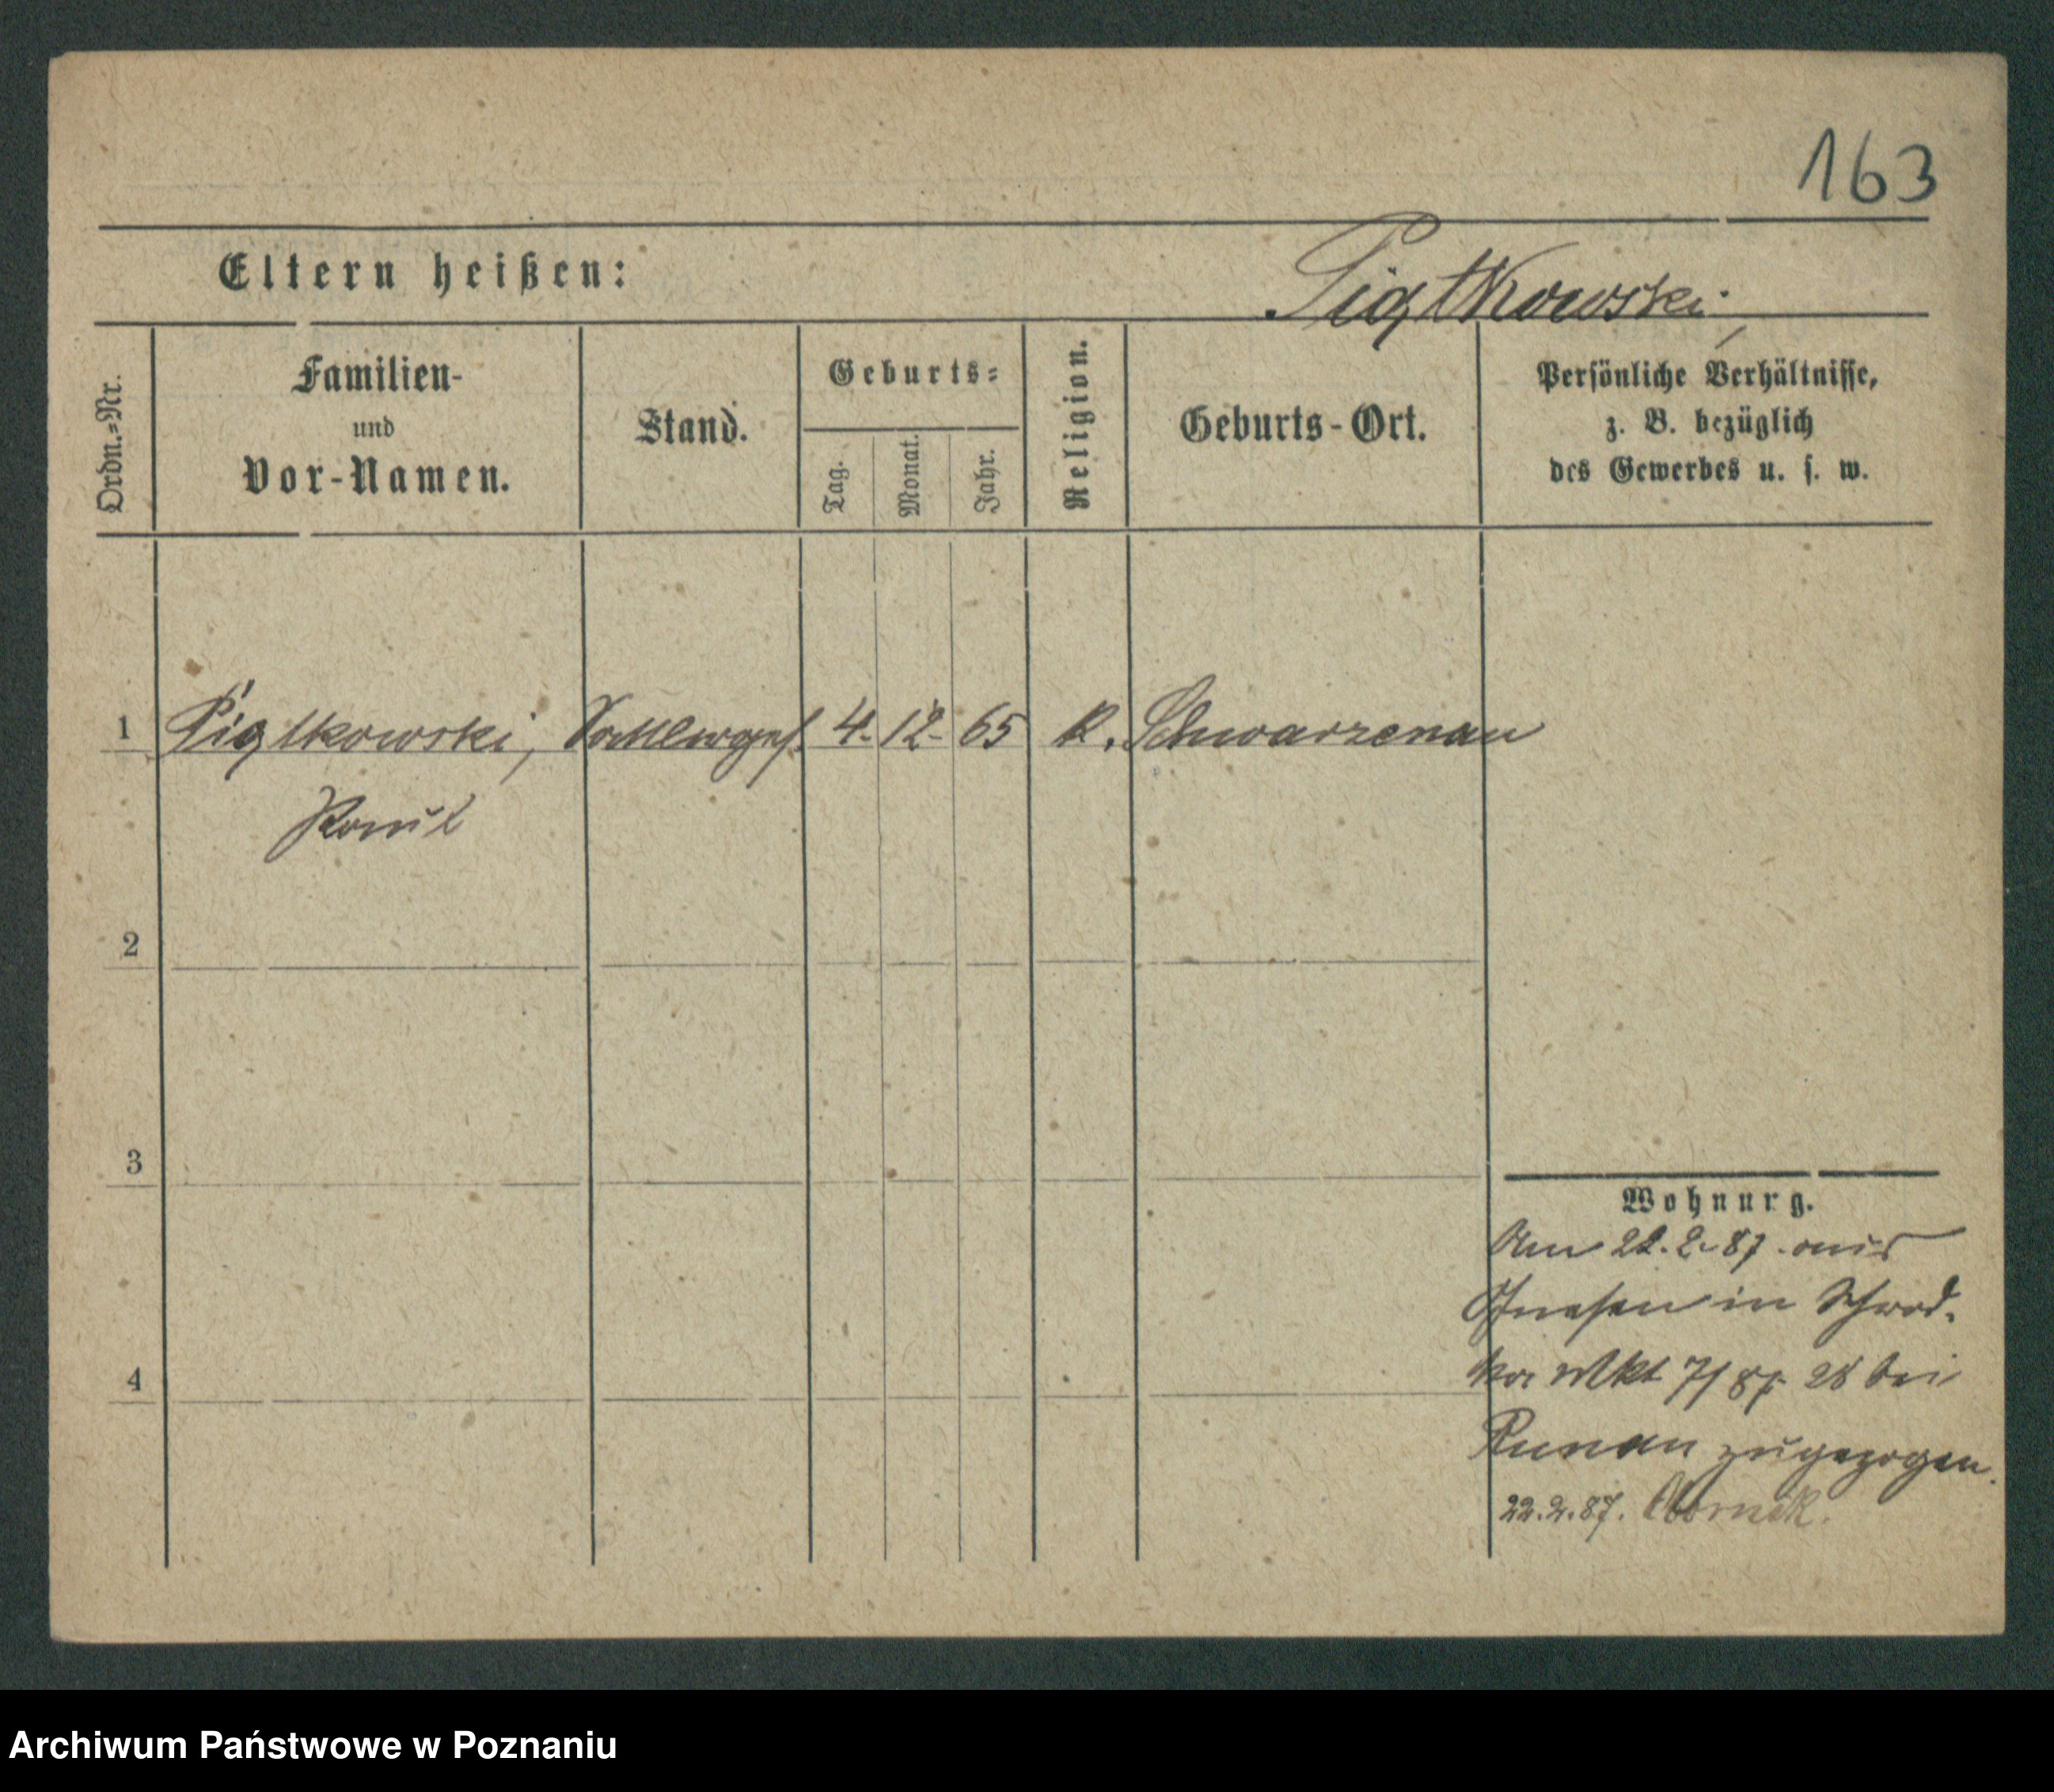 163
Eltern heißen:
Piątkowski,
Ordn.=Nr.
Familien-
und
Vor-Namen.
Stand.
Geburts=
Tag.
Monat.
Jahr.
Religion.
Geburts-Ort.
Persönliche Verhältnisse,
z. B. bezüglich
des Gewerbes u. s. w.
1 Piątkowski, Sattlerges. 4. 12. 65 K. Schwarzenau
Paul
2
3
4
Wohnung.
Am 22.2.87. aus
Gnesen in Schrod-
ka Mkt 7/8 28 bei
Runau zugezogen.
22.2.87.
Archiwum Państwowe w Poznaniu